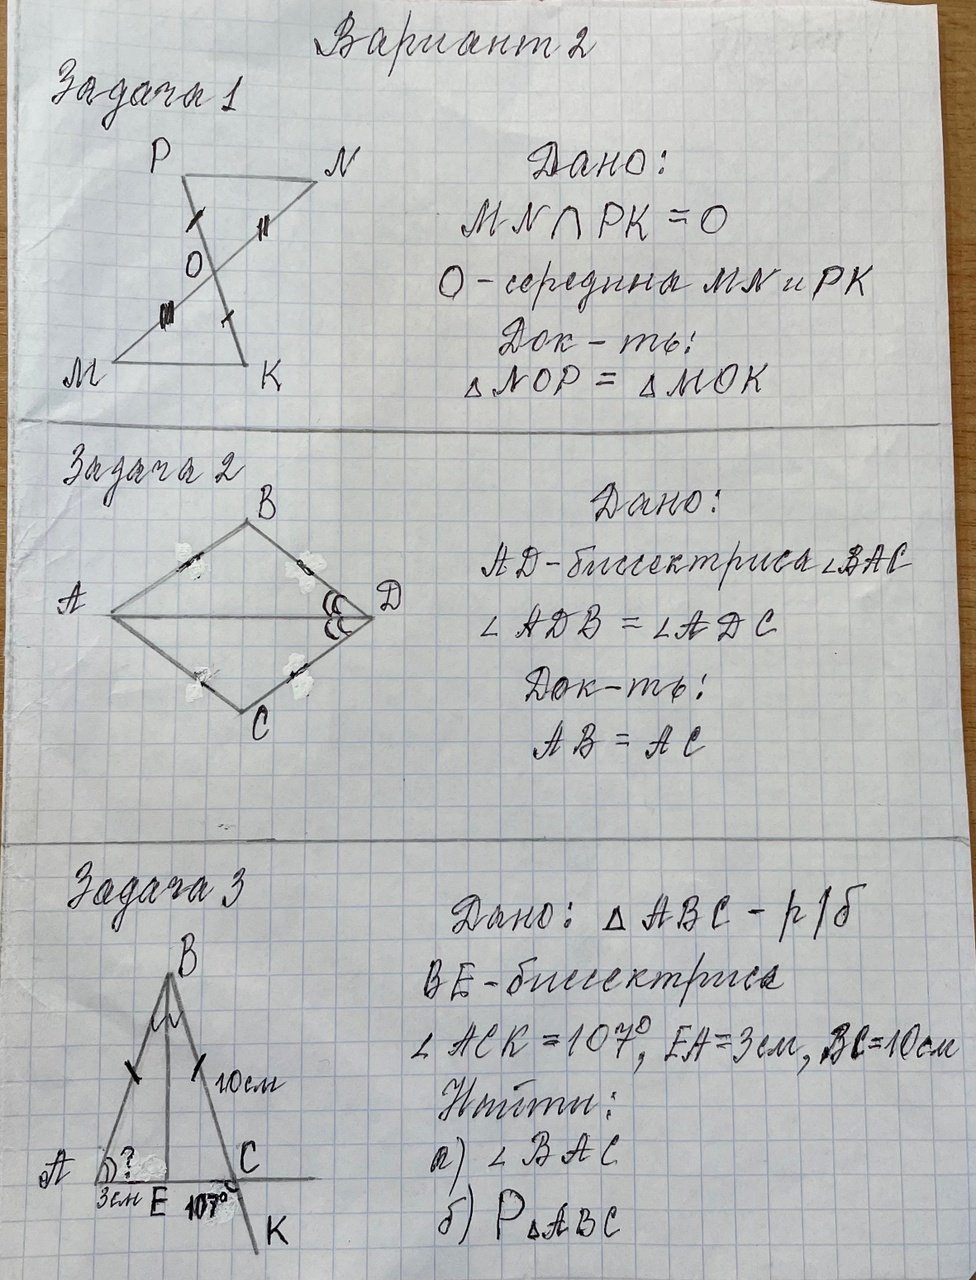 Вариант 2
Задача 1
P
N
O
M
K
Дано:
MN ∩ PK = O
O - середина MN и PK
Док - ть:
△ NOP = △ MOK
Задача 2
B
A
D
C
Дано:
AD - биссектриса ∠BAC
∠ADB = ∠ADC
Док-ть:
AB = AC
Задача 3
B
10см
A
?
C
3см
E
107°
K
Дано: △ ABC - р/б
BE - биссектриса
∠ACK = 107°, EA = 3см, BC = 10см
Найти:
а) ∠BAC
б) P△ABC